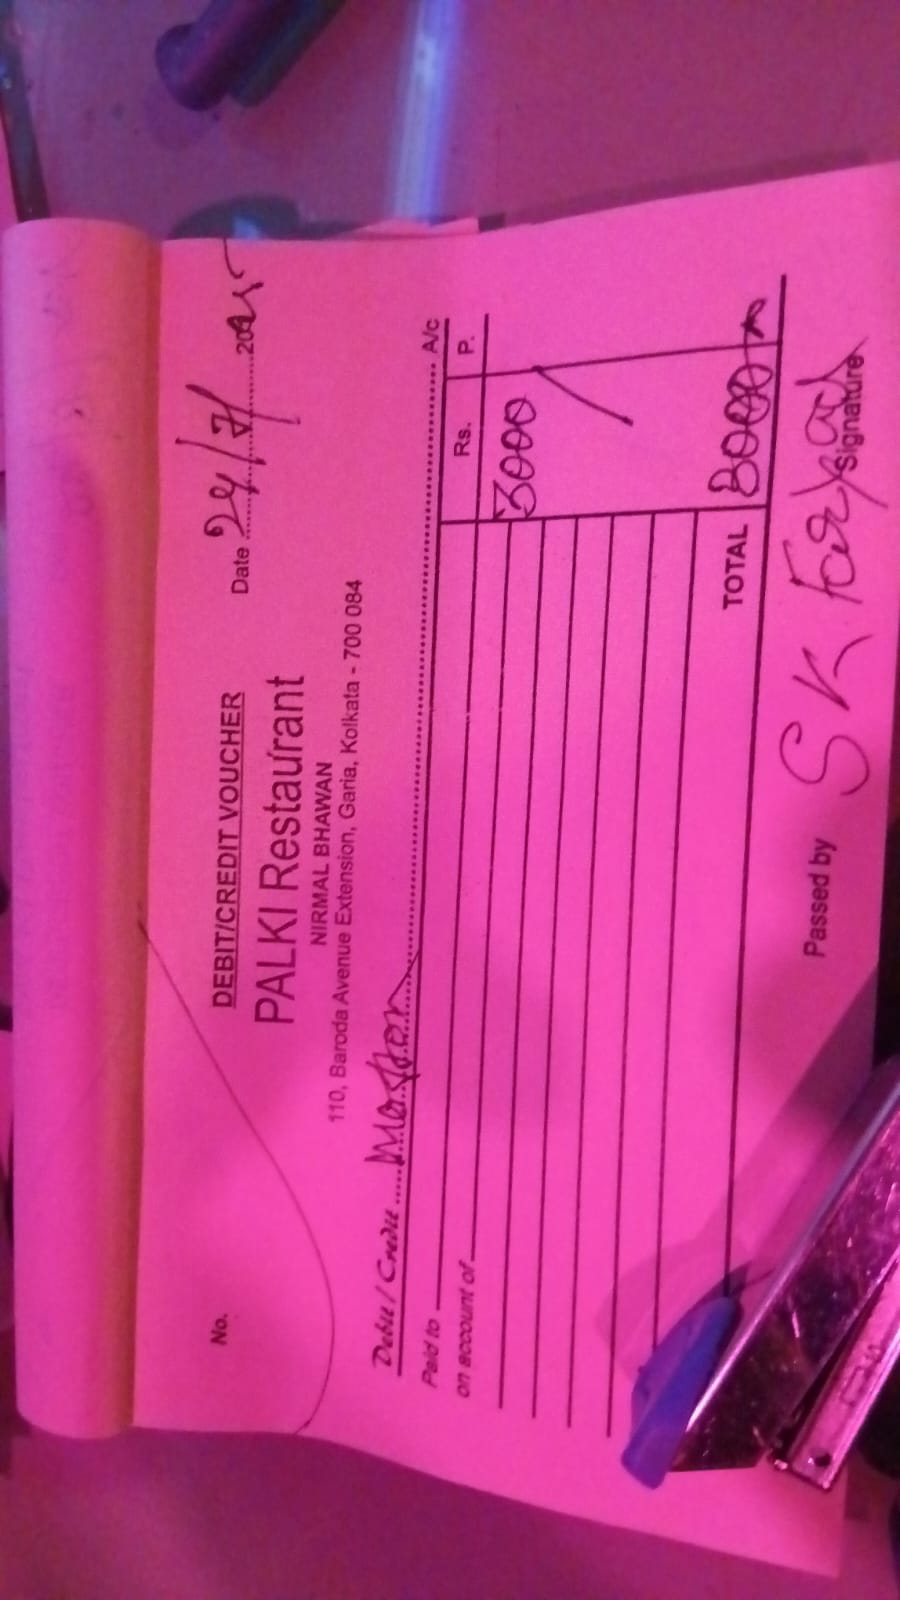 No.
DEBIT/CREDIT VOUCHER
Date 24/7/2025
PALKI Restaurant
NIRMAL BHAWAN
110, Baroda Avenue Extension, Garia, Kolkata - 700 084
Debit / Credit Master A/c
Paid to Rs. P.
on account of
3000/
TOTAL 3000/
Passed by SK
Signature